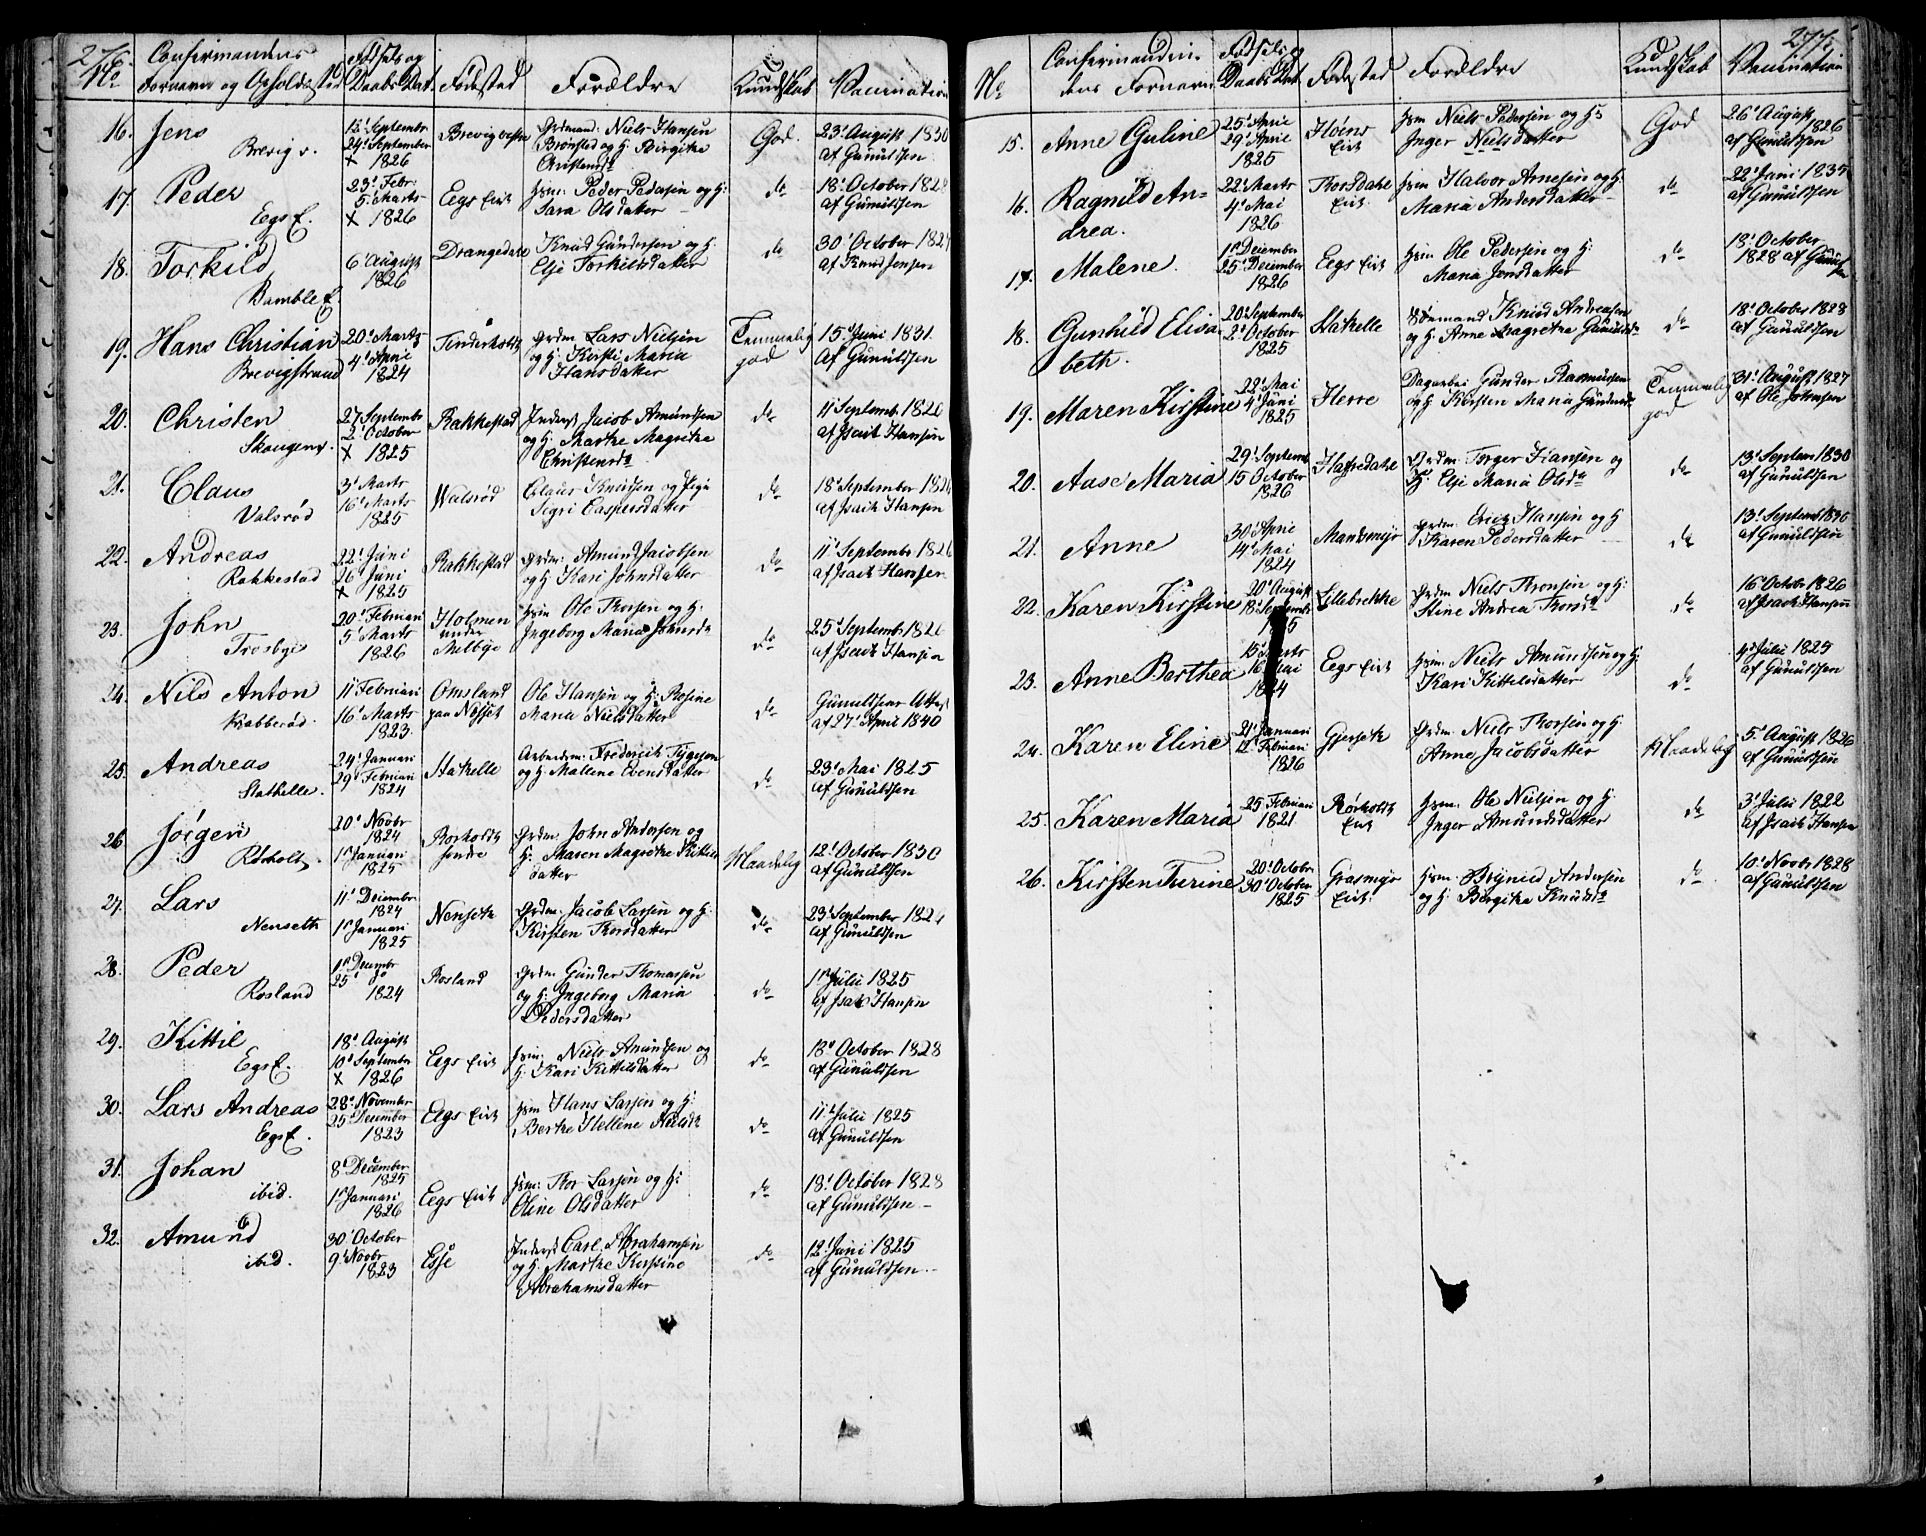 276.
No
Confirmandens
Fornavn og Opholdssted
Fødsels og
Daabs Dat
Fødested
Forældre
Kundskab
Vaccination
16. Jens
Brevig v.
12' Septembr
24' September
X 1826
Brevig vestre
Grdmand: Niels Hansen
Brønstad og H. Birgithe
Christensd
God.
23' August 1830
af Gunuldsen
17. Peder
Eegs E.
23' Febr
5' Marts
X 1826
Eegs Eiet
Hsm: Peder Pedersen og H:
Sara Olsdatter
do
18' October 1828
af Gunuldsen
18. Torkild
Bamble E.
6' August
1826
Drangedale
Knud Gundersen og H.
Else Torkildsdatter
do
30' October 1827
af Knud Jensen
19. Hans Christian
Brevigstrand
20' Marts
4' April
1824
Findeholdt
Grdm Lars Nielsen
og H. Kirsti Maria
Hansdatter
Temmelig
god
15' Juni 1831.
af Gunuldsen
20. Christen
Skougen
27' Septembr
2' October
X 1825
Rakkestad
Inderst Jacob Amundsen
og H. Marthe Magrethe
Christensd
do
11' Septembr 1826
af Isack Hansen
21. Claus
Valsrød
3' Marts
16' Marts
1825
Walsrød
Claus Knudsen og Pige
Sigri Caspersdatter
do
18' September 1826
af Isack Hansen
22. Andreas
Rakkestad
22' Juni
26' Juni
X 1825
Rakkestad
Grdm: Amund Jacobsen
og H. Kari Johnsdatter
do
11' September 1826
af Isack Hansen
23. John
Trosbye
20' Februari
5' Marts
1826
Holmen
under
Melbye
Hsm Ole Thorsen og H:
Ingeborg Maria Johnsd
do
25' Septembr 1826
af Isack Hansen
24. Nils Anton
Krabberød.
11' Februari
16' Marts
1823.
Omsland
paa Næsset
Ole Hansen og H: Rosine
Maria Nielsdatter
do
Gunuldsens Attest
af 27' April 1840
25. Andreas
Stathelle.
24' Januari
29' Februari
1824
Stathelle
Arbeidsm: Frederich Tygesen
og H: Mallene Evensdatter
do
23' Mai 1825
af Gunuldsen
26. Jørgen
Rørholt.
30' Novbr
1824
1' Januari
1825
Rørholdt
søndre
Grdm. John Andersen og
H. Maren Magrethe Kittils
datter
Maadelig
12' October 1830
af Gunuldsen
27. Lars
Nenseth
11' Decembr
1824
1' Januari
1825
Nenseth
Grdm: Jacob Larsen og H:
Kirsten Thorsdatter
do
23' September 1824
af Gunuldsen
28. Peder
Rosland
1' Decembr
25' do
1824
Rosland
Grdm. Gunder Thomassen
og H. Ingeborg Maria
Pedersdatter
do
1' Julii 1825
af Isak Hansen
29. Kittil
Egs E.
18' August
10' September
X 1826
Eegs Eiet
Hsm: Niels Amundsen og
H. Kari Kittilsdatter
do
18' October 1828
af Gunuldsen
30. Lars Andreas
Egs E.
28' November
25' December
1823
Eegs Eiet
Hsm Hans Larsen og H:
Berthe Hellene
do
11' Julii 1825
af Gunuldsen
31. Johan
ibid.
8' December
1825
1' Januari
1826
Eegs Eiet
Hsm: Thor Larsen og H:
Oline Olsdatter
do
18' October 1828
af Gunuldsen
32. Amund
ibid.
30' October
9' Novbr
1823
Esse
Inderst Carl Abrahamsen
og H. Marthe Kirstine
Abrahamsdatter
do
12' Juni 1825
af Gunuldsen
277.
No
Confirmandin
dens Fornavn
Fødsels og
Daabs Dat
Fødested
Forældre
Kundskab
Vaccination
15. Anne Guline
25' April
29' April
1825
Høens
Eiet
Hsm Niels Pedersen og H:
Inger Nielsdatter
God
26' August
1826
af Gunuldsen
16. Ragnild An=
drea.
22' Marts
4' Mai
1826
Thorsdale
Eiet
Hsm Halvor Arnesen og H.
Maria Andersdatter
do
22' Juni 1835
af Gunuldsen
17. Malene.
1' December
25' December
1826
Eegs Eiet
Hsm Ole Pedersen og H:
Maria Jonsdatter
do
18' October
1828 af Gunuld
sen
18. Gunhild Elisa
beth.
20' September
2' October
1825
Stathelle
Sømand Knud Andreasen
og H. Anne Magrethe Gunulds
do
18' October 1828
af Gunuldsen
19. Maren Kirstine
22' Mai
4' Juni
1825
Herre
Dagarbei Gunder Rasmussen
og H. Kirsten Maria Gunders
Temmelig
god
31' August 1827
af Ole Johnsen
20. Aase Maria
29' Septemb
15 October
1826
Hafsedale
Grdm: Torger Hansen og
H. Else Maria Olsd
do
13' Septem 1830
af Gunuldsen
21. Anne
30' April
14' Mai
1824
Mandemyr
Grdm: Erick Hansen og H
Karen Pedersdatter
do
13' Septemb 1830
af Gunuldsen
22. Karen Kirstine
20' August
18' Septembr
1825
Lillebekke
Grdm Niels Thorsen og H:
Stine Andrea Thorsd
do
16' Octobr 1826
af Isack Hansen
23. Anne Berthea
15' Marts
16' Mai
1824
Eegs Eiet
Hsm. Niels Amundsen og H:
Kari Kittelsdatter
do
4' Julii 1825
af Gunuldsen
24. Karen Eline
21' Januari
12' Februari
1826
Gjerseth
Grdm. Niels Thorsen og H:
Anne Jacobsdatter
Maadelig
5' August 1826
af Gunuldsen
25. Karen Maria
25 Februari
1821
Rørholdt
Eiet
Hsm. Ole Nielsen og H
Inger Amundsdatter
do
3' Julii 1822
af Isack Hansen
26. Kirsten Turine
20' October
30' October
1825
Grasmyr
Eiet.
Hsm. Brynild Andersen
og H: Bergithe Knudsd
do
10' Novbr 1828
af Gunuldsen